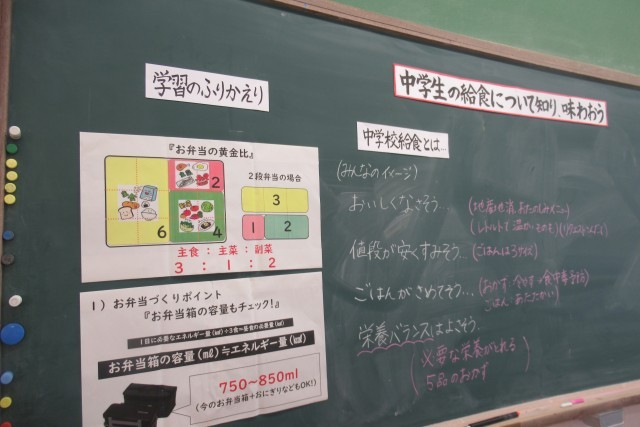 学習のふりかえり
『お弁当の黄金比』
2
6
4
2段弁当の場合
3
1
2
主食:主菜:副菜
3:1:2
1)お弁当づくりポイント
『お弁当箱の容量もチェック!』
1日に必要なエネルギー量(㎉)÷3食=昼食の必要量(㎉)
お弁当箱の容量(㎖)≒エネルギー量(㎉)
750~850ml
(今のお弁当箱+おにぎりなどもOK!)
中学生の給食について知り、味わおう
中学校給食とは…
(みんなのイメージ)
おいしくなさそう…
(地産地消
値段が安くすみそう…
(ごはんは3サイズ)
ごはんがさめてそう…
(おかず
ごはん:あたたかい)
栄養バランスはよさそう。
(必要な栄養がとれる
5品のおかず